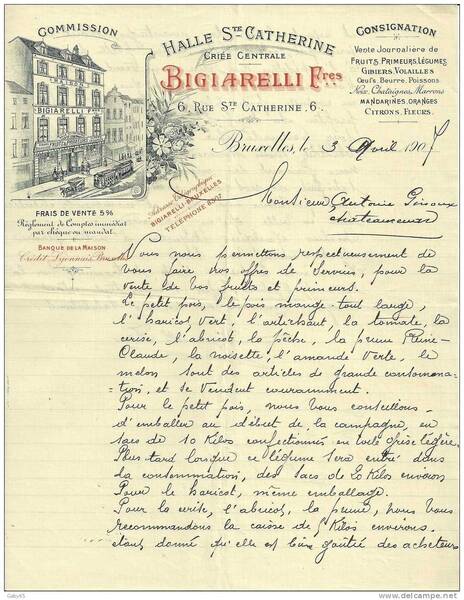 COMMISSION
HALLE STE CATHERINE
CRIÉE CENTRALE
BIGIARELLI Fres
6, RUE STE CATHERINE, 6.
CONSIGNATION
Vente Journalière de
FRUITS, PRIMEURS, LÉGUMES
GIBIERS, VOLAILLES
Œufs, Beurre, Poissons
Noix, Chataignes, Marrons
MANDARINES, ORANGES
CITRONS, FLEURS.
BIGIARELLI Fres
Bruxelles, le 3 Avril 1907
Adresse Télégraphique
BIGIARELLI-BRUXELLES
TÉLÉPHONE 6907
FRAIS DE VENTE 5%
Règlement de Comptes immédiat
par chèque ou mandat.
BANQUE DE LA MAISON
Crédit Lyonnais, Bruxelles
Monsieur Antoine
Chateaurenard
Vous nous permettons respectueusement de
vous faire nos offres de services, pour la
vente de vos fruits et primeurs.
Le petit pois, le pois mange-tout large,
l'haricot vert, l'artichaut, la tomate, la
cerise, l'abricot, la pêche, la prune Reine-
Claude, la noisette, l'amande verte, le
melon sont des articles de grande consomma-
tion, et se vendent couramment.
Pour le petit pois, nous vous conseillons
d'emballer au début de la campagne, en
sacs de 10 kilos confectionnés en toile grise légère.
Plus tard lorsque ce légume sera entré dans
la consommation, des sacs de 20 kilos environ
Pour le haricot, même emballage.
Pour la cerise, l'abricot, la prune, nous vous
recommandons la caisse de 5 kilos environ.
étant donné qu'elle est bien goûtée des acheteurs
Gaby45
delcampe.net